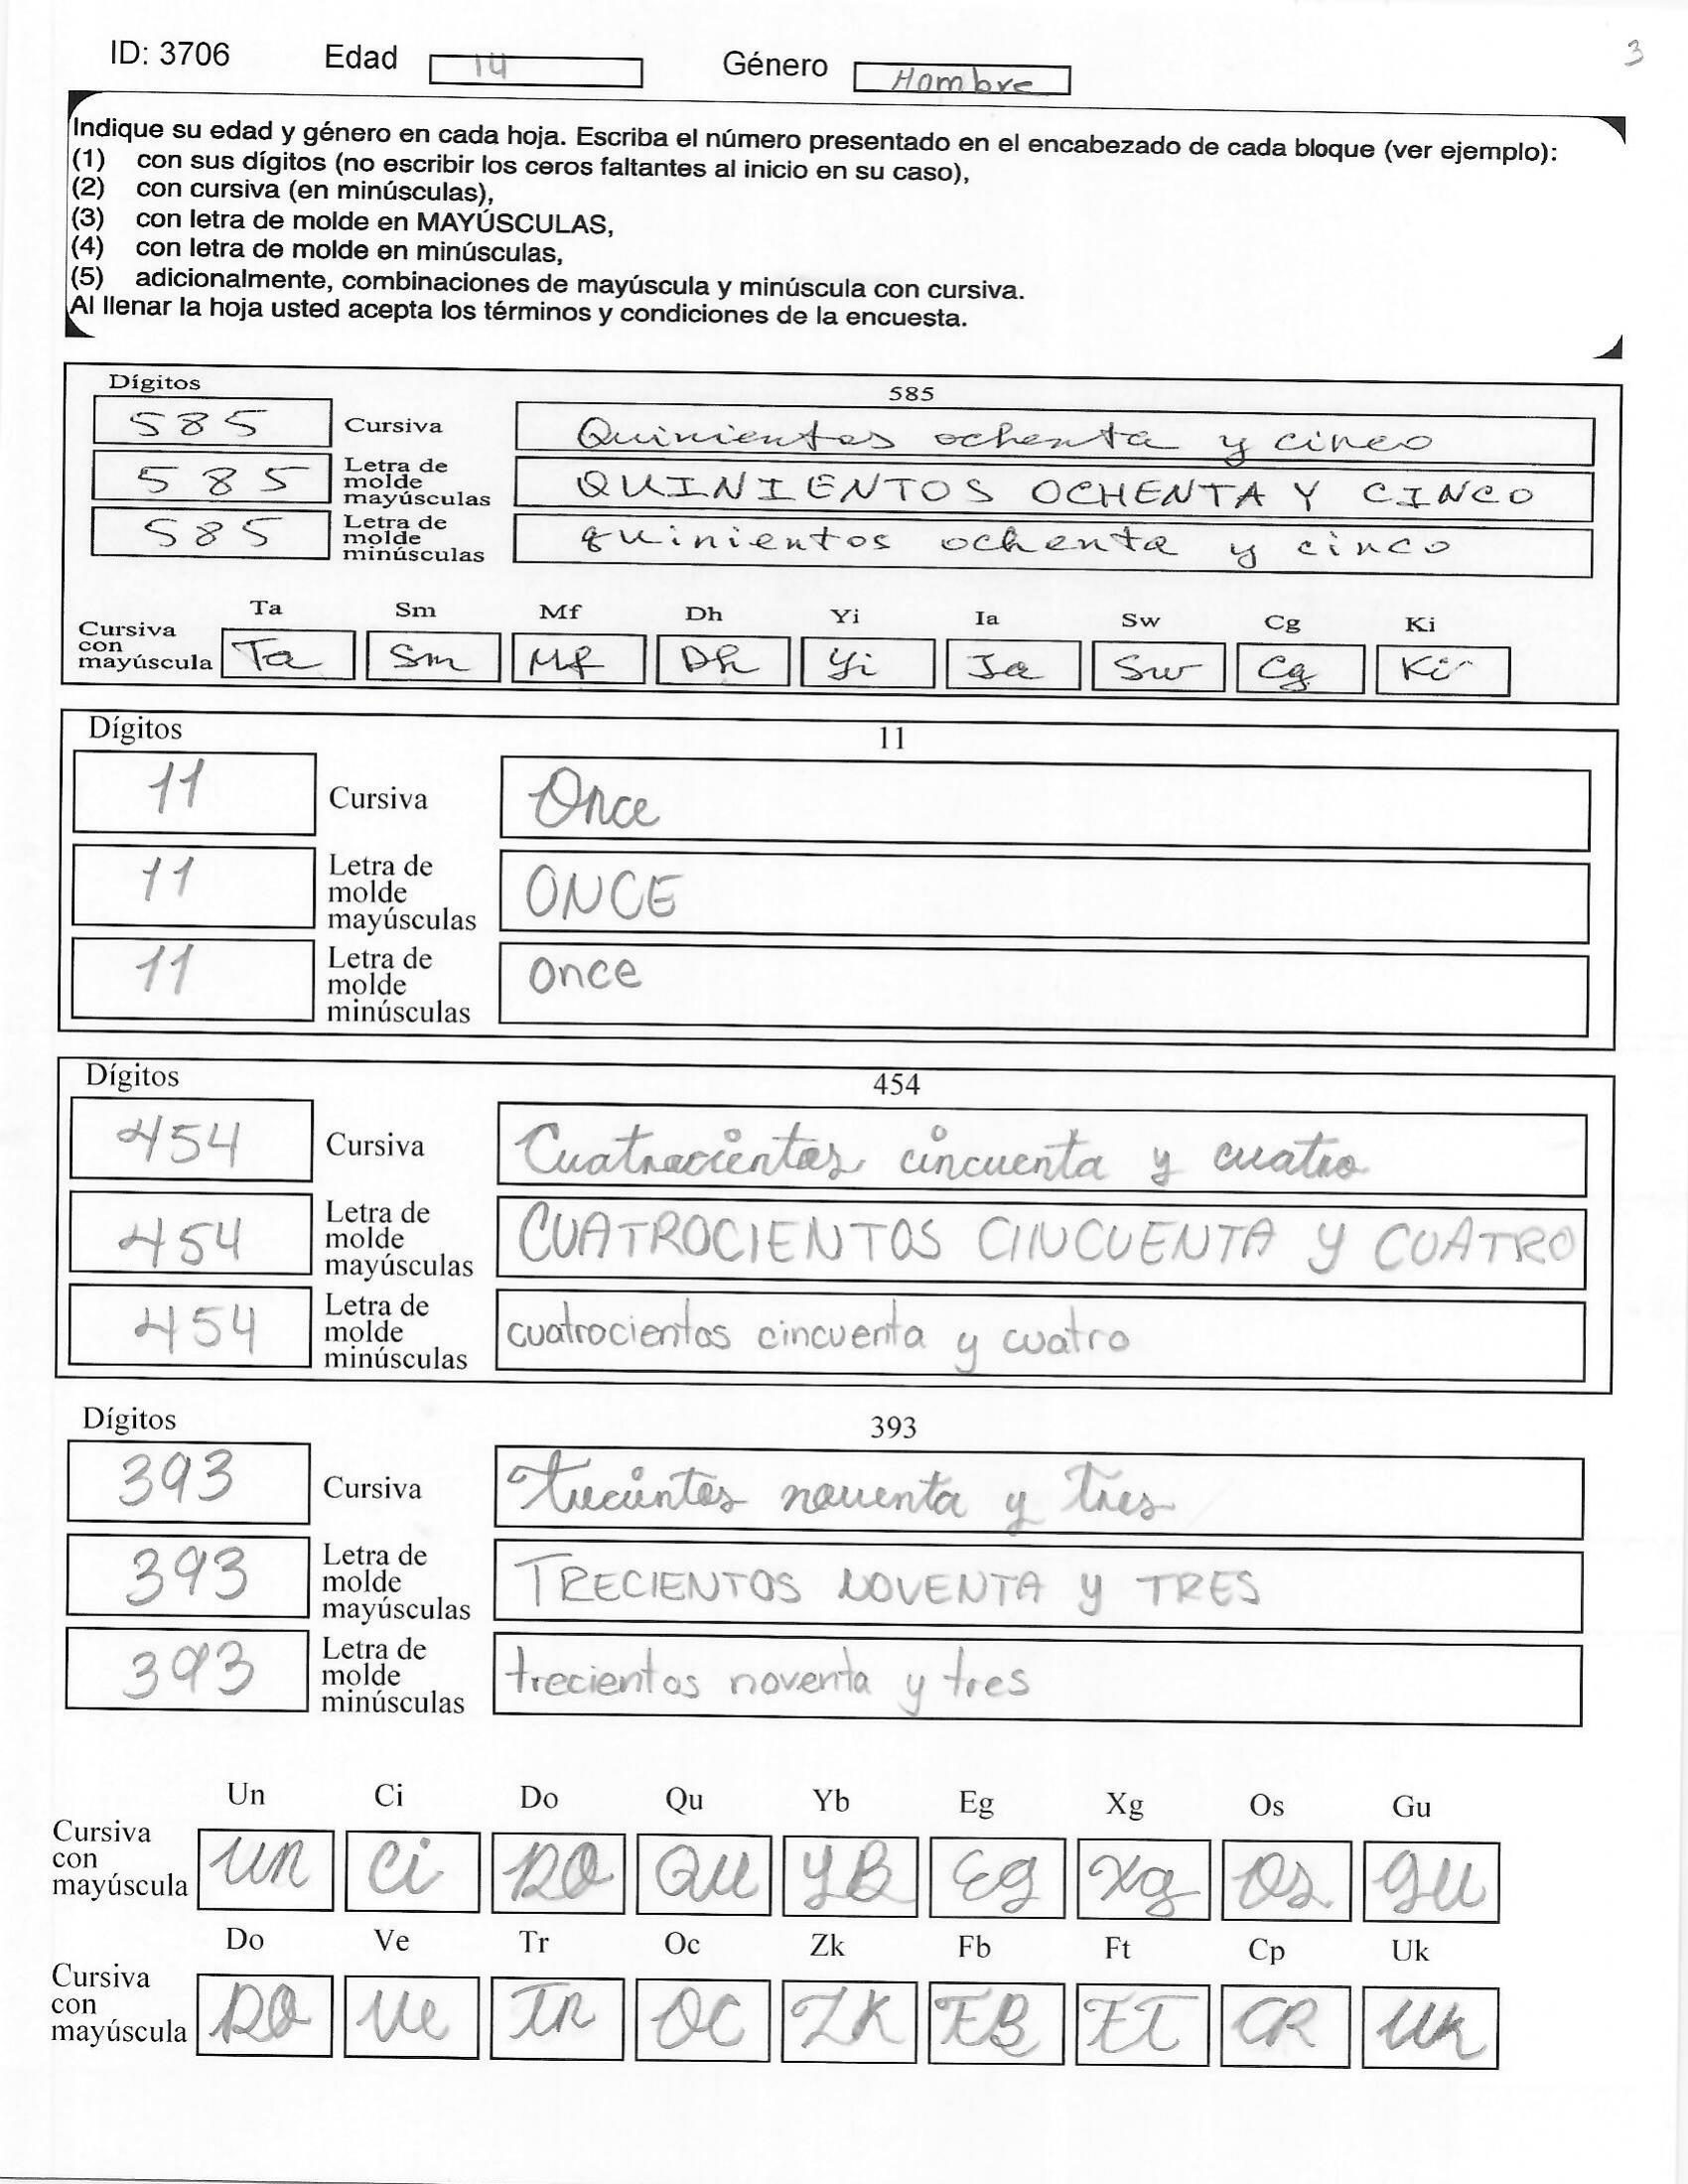 ID: 3706 Edad 14 Género Hombre 3
Indique su edad y género en cada hoja. Escriba el número presentado en el encabezado de cada bloque (ver ejemplo):
(1) con sus dígitos (no escribir los ceros faltantes al inicio en su caso),
(2) con cursiva (en minúsculas),
(3) con letra de molde en MAYÚSCULAS,
(4) con letra de molde en minúsculas,
(5) adicionalmente, combinaciones de mayúscula y minúscula con cursiva.
Al llenar la hoja usted acepta los términos y condiciones de la encuesta.
Dígitos 585
585 Cursiva Quinientos ochenta y cinco
585 Letra de molde mayúsculas QUINIENTOS OCHENTA Y CINCO
585 Letra de molde minúsculas quinientos ochenta y cinco
Ta Sm Mf Dh Yi Ia Sw Cg Ki
Cursiva con mayúscula Ta Sm Mf Dh Yi Ia Sw Cg Ki
Dígitos 11
11 Cursiva Once
11 Letra de molde mayúsculas ONCE
11 Letra de molde minúsculas once
Dígitos 454
454 Cursiva Cuatrocientos cincuenta y cuatro
454 Letra de molde mayúsculas CUATROCIENTOS CINCUENTA Y CUATRO
454 Letra de molde minúsculas cuatrocientos cincuenta y cuatro
Dígitos 393
393 Cursiva trecientos noventa y tres
393 Letra de molde mayúsculas TRECIENTOS NOVENTA Y TRES
393 Letra de molde minúsculas trecientos noventa y tres
Un Ci Do Qu Yb Eg Xg Os Gu
Cursiva con mayúscula Un Ci DO QU YB Eg Xg Os GU
Do Ve Tr Oc Zk Fb Ft Cp Uk
Cursiva con mayúscula DO Ve TR OC ZK FB FT CR Uk